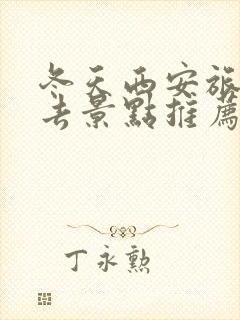 冬天西安旅
去景點推薦
丁永勲